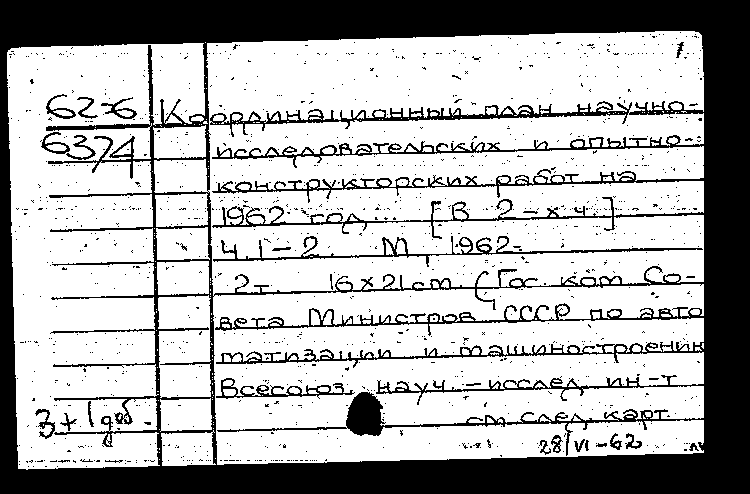 1.
62-6 Координационный план научно-
6374 исследовательских и опытно-
конструкторских работ на
1962 год... [В 2-х ч.]
Ч. 1-2. М., 1962-
2т. 16х21см. (Гос. ком. Со-
вета Министров СССР по авто
матизации и машиностроению
Всесоюз. науч.-исслед. ин-т
3+1 доб. см след. карт
28/VI-62